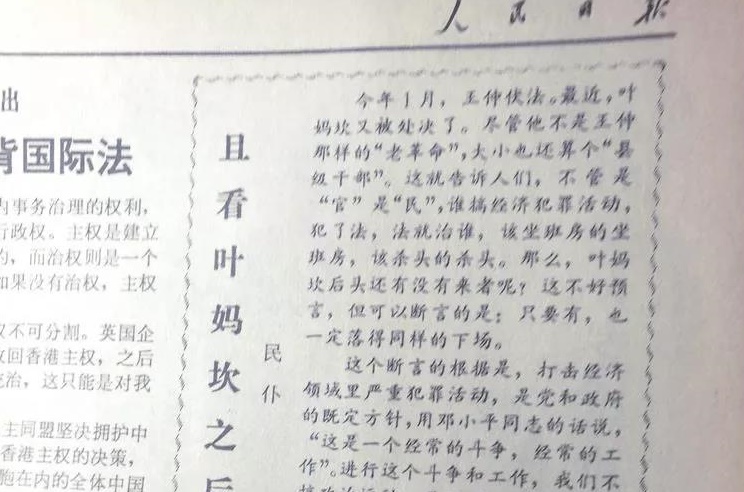 人民日报
出
背国际法
内事务治理的权利，
行政权。主权是建立
的，而治权则是一个
如果没有治权，主权
权不可分割。英国企
收回香港主权，之后
统治，这只能是对我
主同盟坚决拥护中
香港主权的决策，
胞在内的全体中国
且看叶妈坎之后
民仆
今年1月，王仲伏法。最近，叶
妈坎又被处决了。尽管他不是王仲
那样的“老革命”，大小也还算个“县
级干部”。这就告诉人们，不管是
“官”是“民”，谁搞经济犯罪活动，
犯了法，法就治谁，该坐班房的坐
班房，该杀头的杀头。那么，叶妈
坎后头还有没有来者呢？这不好预
言，但可以断言的是：只要有，也
一定落得同样的下场。
这个断言的根据是，打击经济
领域里严重犯罪活动，是党和政府
的既定方针，用邓小平同志的话说，
“这是一个经常的斗争，经常的工
作”。进行这个斗争和工作，我们不